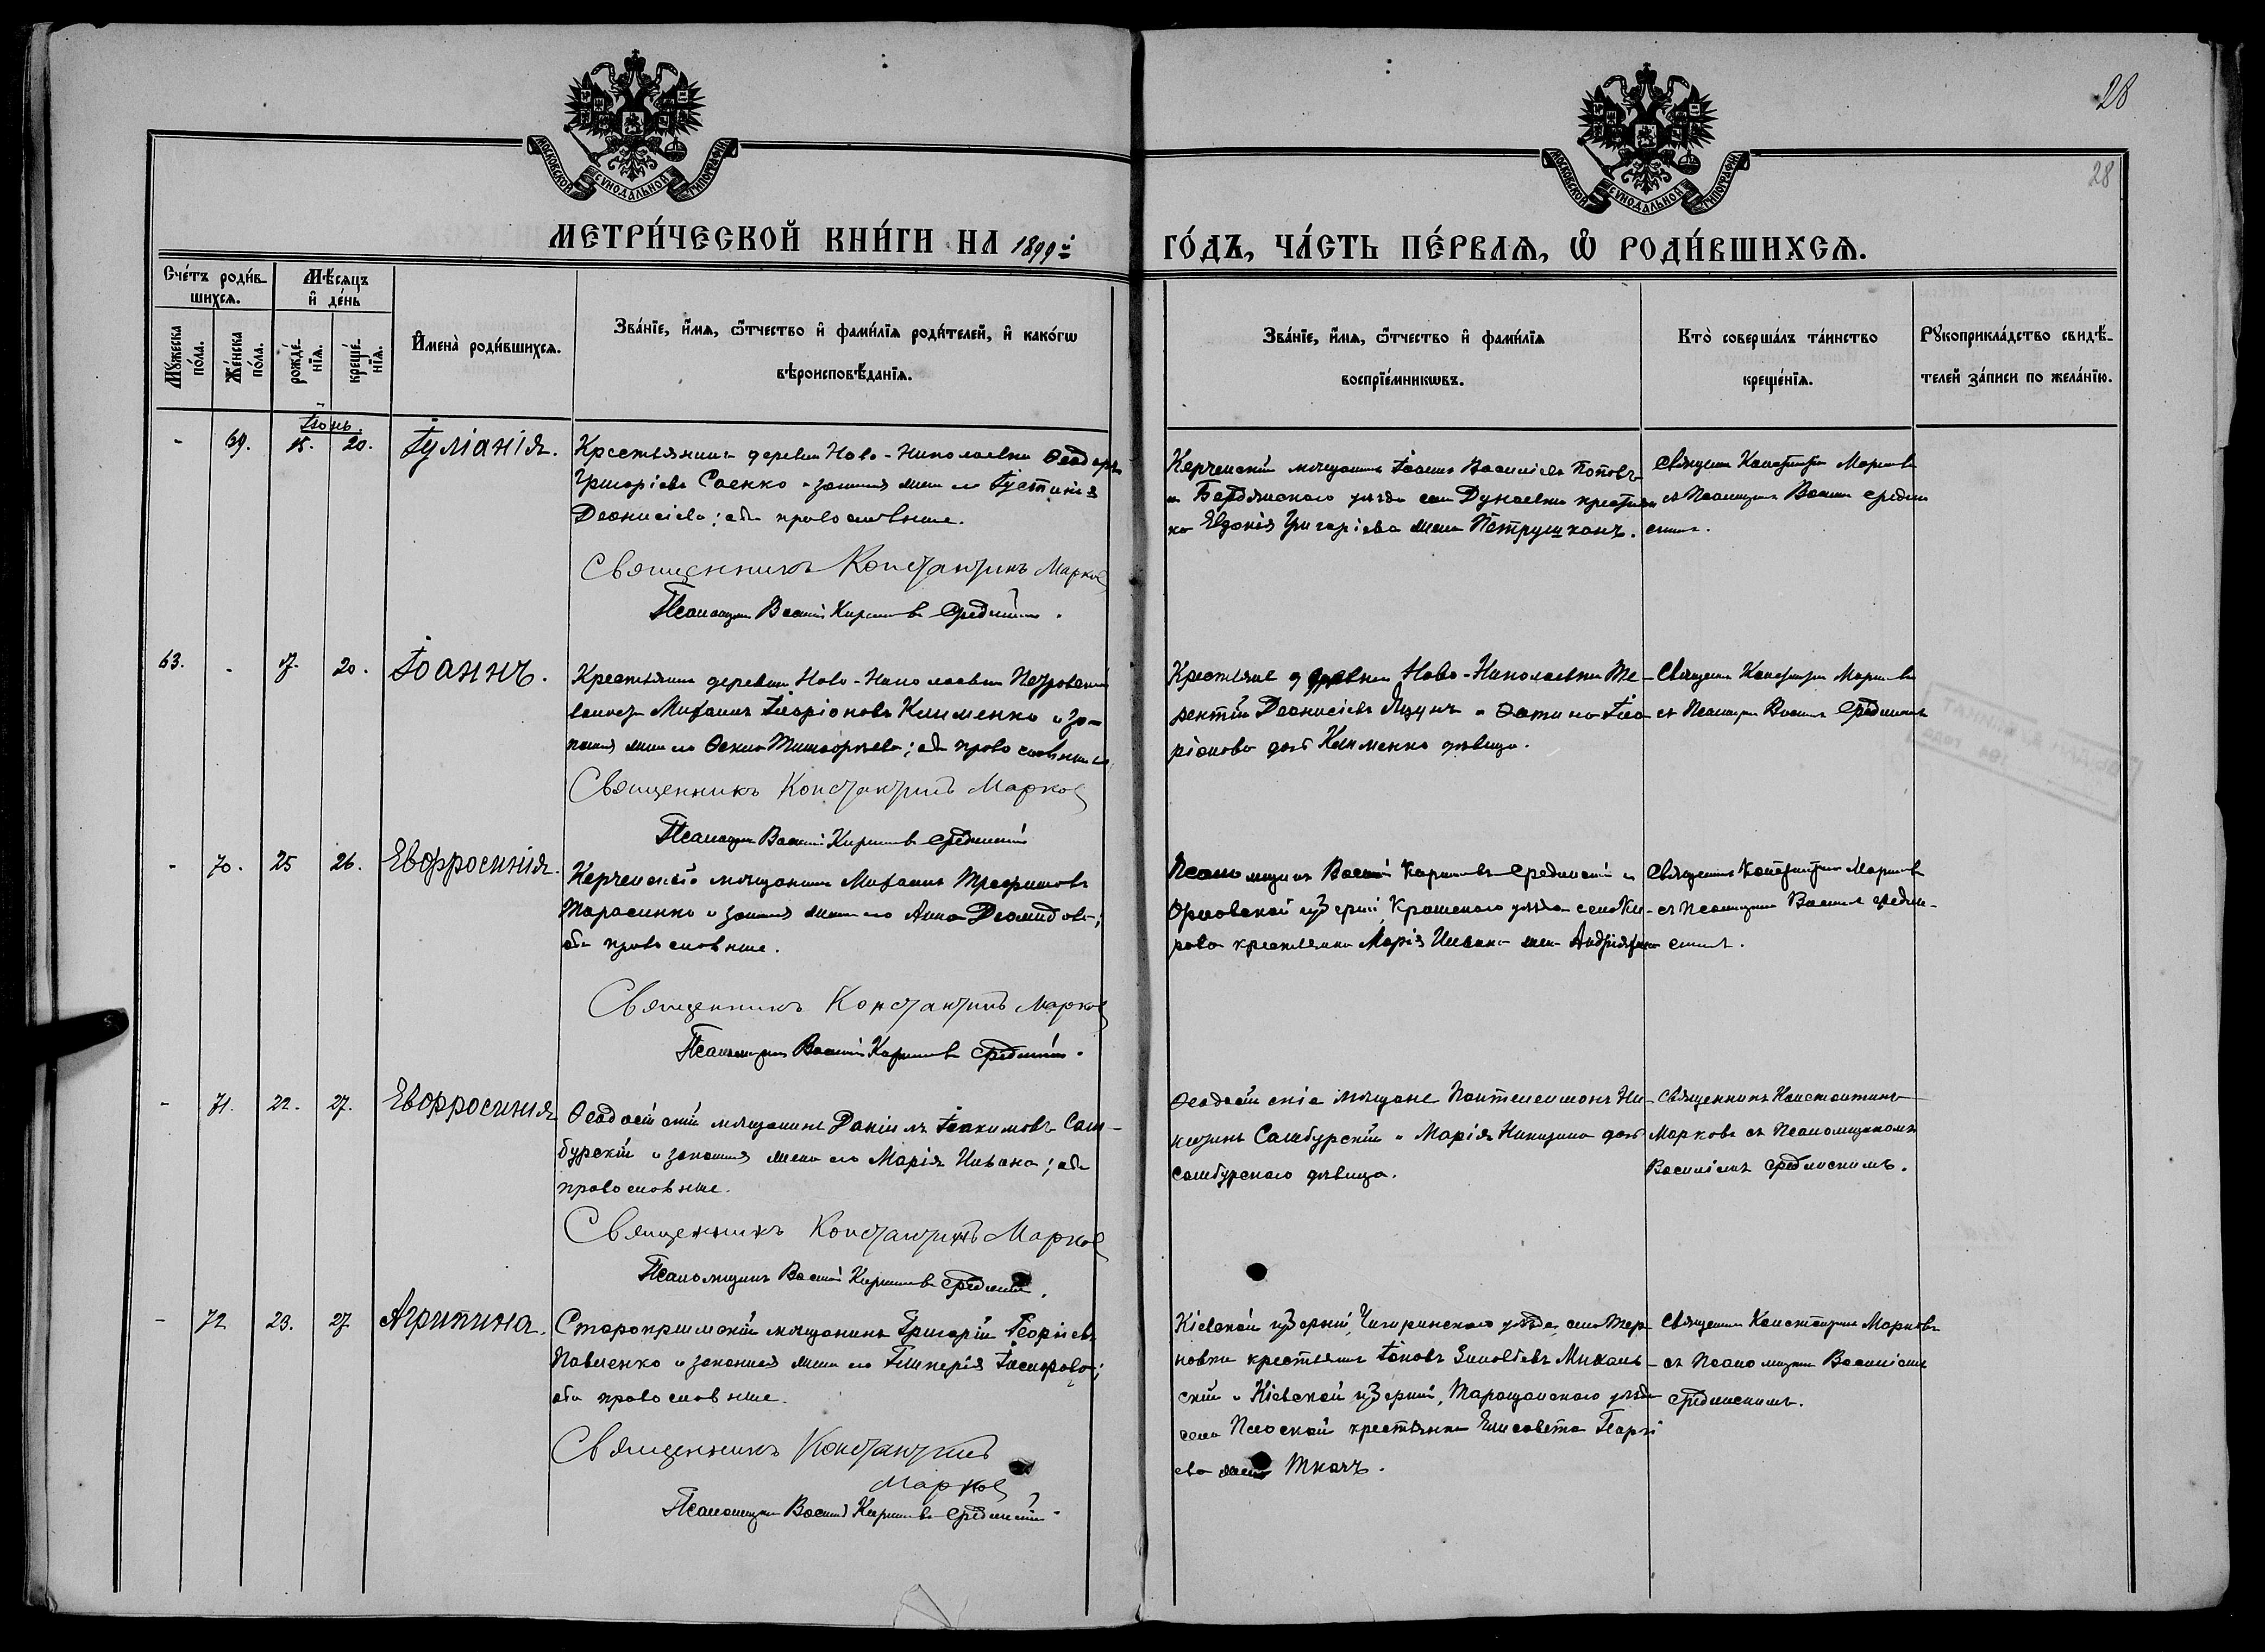 28
28
МОСКОВСКОЙ СѴНОДАЛЬНОЙ ТИПОГРАФІИ
МОСКОВСКОЙ СѴНОДАЛЬНОЙ ТИПОГРАФІИ
МЕТРИ́ЧЕСКОЙ КНИ́ГИ НА 1899й
ГО́ДЪ, ЧА́СТЬ ПЕ́РВАѦ, Ѡ҆ РОДИ́ВШИХСѦ.
Сче́тъ роди́в-
шихсѧ.
Мѣ́сѧцъ
и҆ де́нь
Мꙋ́жеска
по́ла.
Же́нска
по́ла.
рожде́-
нїѧ.
креще́-
нїѧ.
И҆мена̀ роди́вшихсѧ.
Зва́нїе, и҆́мѧ, ѻ҆́тчество и҆ фами́лїѧ роди́телей, и҆ како́гѡ
вѣроисповѣ́данїѧ.
Зва́нїе, и҆́мѧ, ѻ҆́тчество и҆ фами́лїѧ
воспрїе́мникѡвъ.
Кто̀ соверша́лъ та́инство
креще́нїѧ.
Рꙋкоприкла́дство свидѣ́-
телей за́писи по жела́нїю.
Іюнь.
- 69. 15. 20. Іуліанія.
Крестьянинъ деревни Ново-Николаевки Ѳеодоръ
Григоріевъ Саенко и законная жена его Іустинія
Діонисіева; оба православные.
Священникъ Константинъ Марковъ
Псаломщикъ Василій Кириловъ Срединскій.
Керченскій мѣщанинъ Іоаннъ Василіевъ Поповъ
и Бердянскаго уѣзда села Дунаевки крестьян
ка Евдокія Григоріева жена Петрушкана.
Священникъ Константинъ Марковъ
съ Псаломщикомъ Василіемъ Средин
скимъ.
63. - 17. 20. Іоаннъ.
Крестьянинъ деревни Ново-Николаевки Петровской
волости Михаилъ Иларіоновъ Клименко и за-
конная жена его Ѳекла Тимоѳеева; оба православные
Священникъ Константинъ Марковъ
Псаломщикъ Василій Кириловъ Срединскій
Крестьяне деревни Ново-Николаевки Те-
рентій Діонисіевъ и Фотина Ила-
ріонова дочь Клименко дѣвица.
Священникъ Константинъ Марковъ
съ Псаломщикомъ Василіемъ Срединскимъ
- 70. 25 26. Евфросинія.
Керченскій мѣщанинъ Михаилъ Трофимовъ
Тарасенко и законная жена его Анна Діомидова;
оба православные.
Священникъ Константинъ Марковъ
Псаломщикъ Василій Кириловъ Срединскій.
Псаломщикъ Василій Кириловъ Срединскій и
Орловской губерніи, уѣзда села Ки-
рова крестьянка Марія жена
Священникъ Константинъ Марковъ
съ Псаломщикомъ Василіемъ Средин-
скимъ.
- 71. 22. 27. Евфросинія
Ѳеодосійскій мѣщанинъ Даніилъ Іоакимовъ Сам-
бурскій и законная жена его Марія Ивана; оба
православные.
Священникъ Константинъ Марковъ
Псаломщикъ Василій Кириловъ Срединскій.
Ѳеодосійскіе мѣщане Пантелеимонъ Ни-
китинъ Самбурскій и Марія Никитина дочь
Самбурскаго дѣвица.
Священникъ Константинъ
Марковъ съ Псаломщикомъ
Василіемъ Срединскимъ.
- 72 23. 27 Агрипина.
Старокрымскій мѣщанинъ Григорій Георгіевъ
Павленко и законная жена его Гликерія Іосифова;
оба православные.
Священникъ Константинъ
Марковъ
Псаломщикъ Василій Кириловъ Срединскій.
Кіевской губерніи, Чигиринскаго уѣзда, села Тер-
новки крестьянинъ Іаковъ Зиновіевъ Михаль-
скій и Кіевской губерніи, Таращанскаго уѣзда
села Плоской крестьянка Елисавета Георгі
ева жена Ткачъ.
Священникъ Константинъ Марковъ
съ Псаломщикомъ Василіемъ
Срединскимъ.